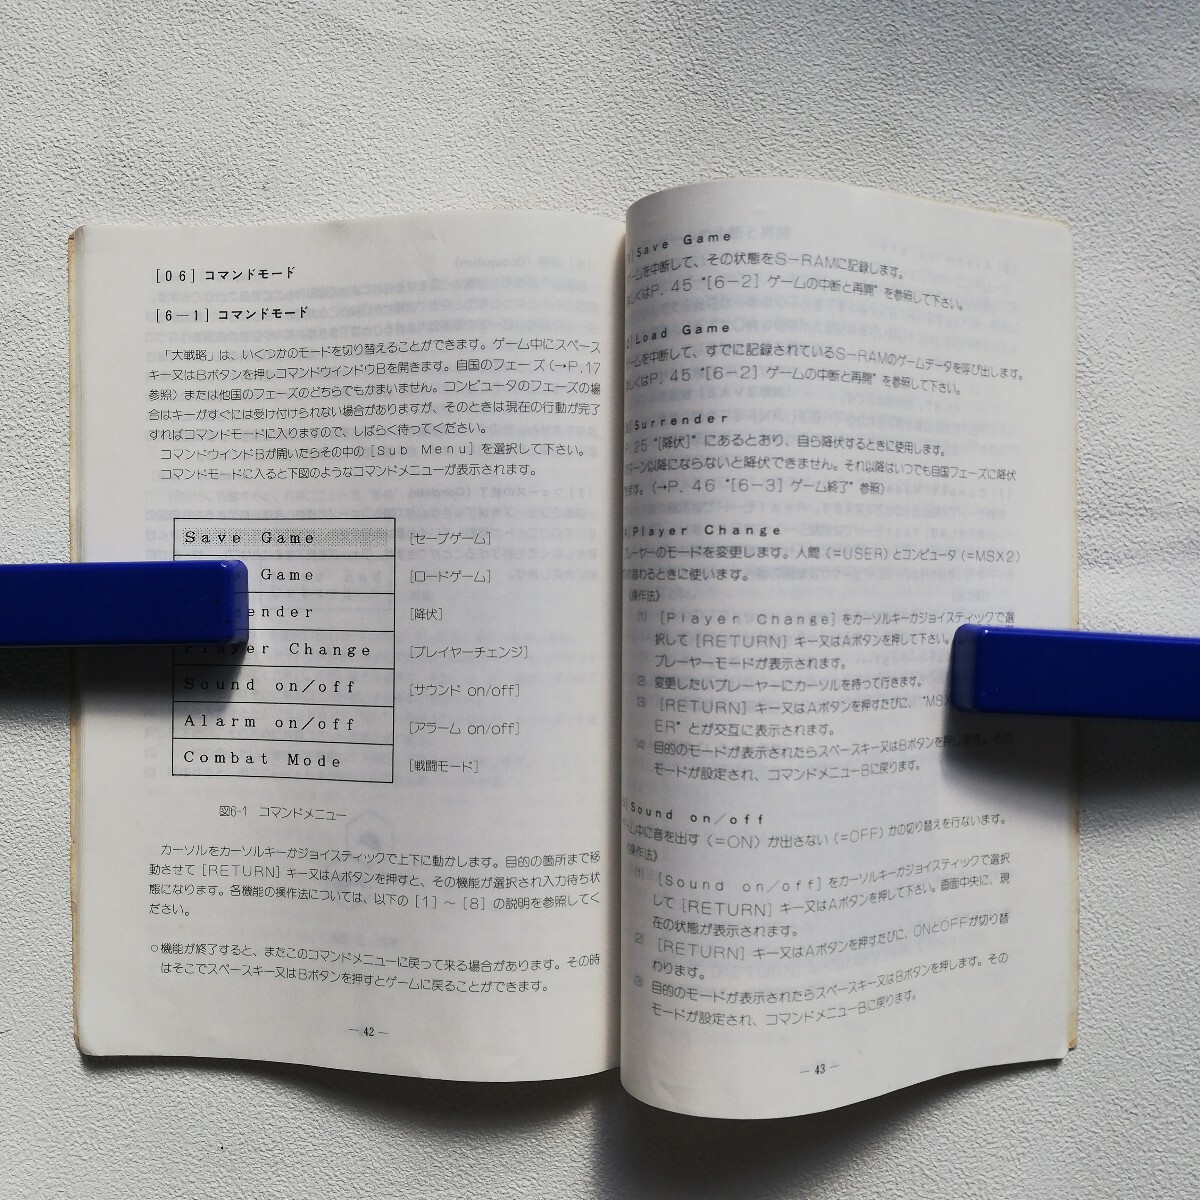 [06] コマンドモード
[6－1] コマンドモード
「大戦略」は、いくつかのモードを切り替えることができます。ゲーム中にスペース
キー又はBボタンを押しコマンドウインドウBを開きます。自国のフェーズ(→P.17
参照) または他国のフェーズのどちらでもかまいません。コンピュータのフェーズの場
合はキーがすぐには受け付けられない場合がありますが、そのときは現在の行動が完了
すればコマンドモードに入りますので、しばらく待ってください。
コマンドウインドBが開いたらその中の [Sub Menu] を選択して下さい。
コマンドモードに入ると下図のようなコマンドメニューが表示されます。
Save Game [セーブゲーム]
Game [ロードゲーム]
ender [降伏]
Player Change [プレイヤーチェンジ]
Sound on/off [サウンド on/off]
Alarm on/off [アラーム on/off]
Combat Mode [戦闘モード]
図6-1 コマンドメニュー
カーソルをカーソルキーかジョイスティックで上下に動かします。目的の箇所まで移
動させて [RETURN] キー又はAボタンを押すと、その機能が選択され入力待ち状
態になります。各機能の操作法については、以下の [1] ～ [8] の説明を参照してく
ださい。
○機能が終了すると、またこのコマンドメニューに戻って来る場合があります。その時
はそこでスペースキー又はBボタンを押すとゲームに戻ることができます。
— 42 —
]Save Game
ームを中断して、その状態をS－RAMに記録します。
しくはP．45 "[6－2] ゲームの中断と再開" を参照して下さい。
2]Load Game
ームを中断して、すでに記録されているS－RAMのゲームデータを呼び出します。
しくはP．45 "[6－2] ゲームの中断と再開" を参照して下さい。
3]Surrender
25 "[降伏]" にあるとおり、自ら降伏するときに使用します。
ターン以降にならないと降伏できません。それ以降はいつでも自国フェーズに降伏
きます。(→P．46 "[6－3] ゲーム終了" 参照)
]Player Change
プレーヤーのモードを変更します。人間 (=USER) とコンピュータ (=MSX2)
替わるときに使います。
《操作法》
(1) [Player Change] をカーソルキーかジョイスティックで選
択して [RETURN] キー又はAボタンを押して下さい。
プレーヤーモードが表示されます。
(2) 変更したいプレーヤーにカーソルを持って行きます。
(3) [RETURN] キー又はAボタンを押すたびに、"MSX
ER" とが交互に表示されます。
(4) 目的のモードが表示されたらスペースキー又はBボタンを押します。その
モードが設定され、コマンドメニューBに戻ります。
]Sound on/off
ーム中に音を出す (=ON) か出さない (=OFF) かの切り替えを行ないます。
操作法》
(1) [Sound on/off] をカーソルキーかジョイスティックで選択
して [RETURN] キー又はAボタンを押して下さい。画面中央に、現
在の状態が表示されます。
(2) [RETURN] キー又はAボタンを押すたびに、ONとOFFが切り替
わります。
(3) 目的のモードが表示されたらスペースキー又はBボタンを押します。その
モードが設定され、コマンドメニューBに戻ります。
— 43 —